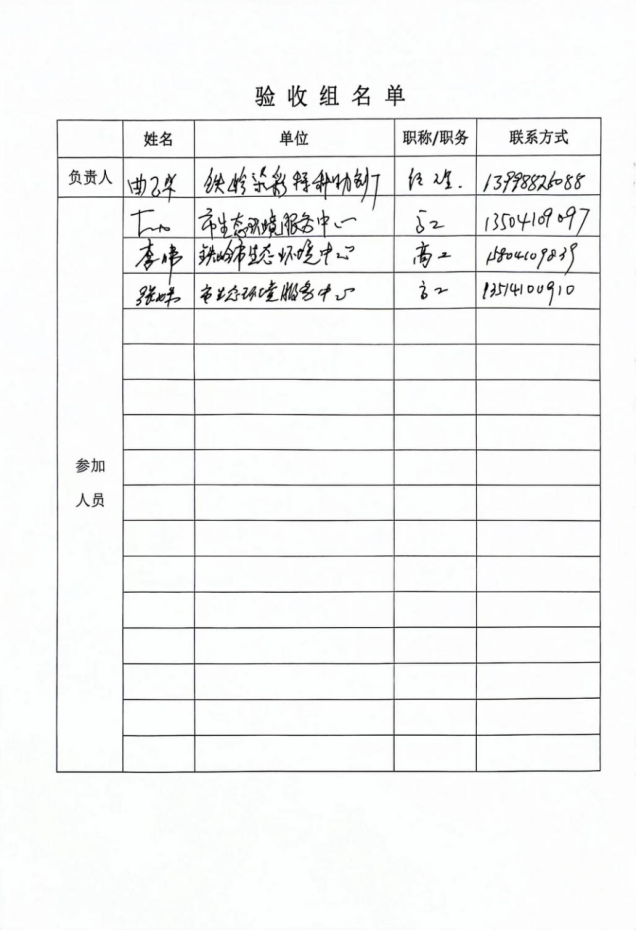 验收组名单
姓名 单位 职称/职务 联系方式
负责人 曲 铁岭 13998826088
市生态环境服务中心 高工 13504109097
李伟 铁岭市生态环境中心 高工 15804109839
张 市生态环境服务中心 高工 13514100910
参加
人员